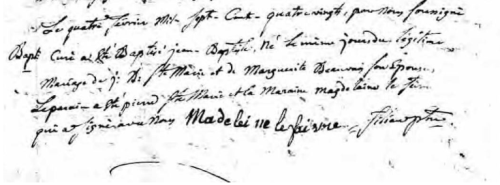 Le quatre fevrier Mil Sept Cent quatre vingt, par Nous soussigné
Bapt Curé a été Baptisé jean Baptiste, Né le même jour du légitime
Mariage de j. Bte Ste Marie et de Marguerite Beauvais son Epouse,
Le parain a été pierre Ste Marie et la Maraine magdelaine le
qui a signé avec Nous Madeleine lefaivre ptre